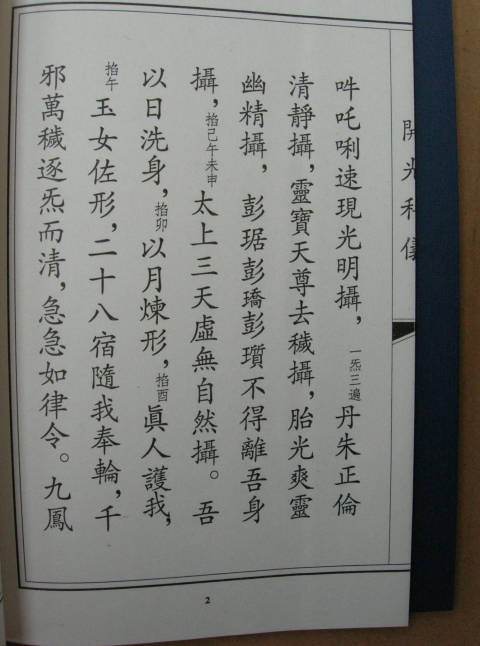 開光科儀
吽吒唎速現光明攝，一炁三遍丹朱正倫
清靜攝，靈寶天尊去穢攝，胎光爽靈
幽精攝，彭琚彭璚彭瓆不得離吾身
攝，掐己午未申太上三天虛無自然攝。吾
以日洗身，掐卯以月煉形，掐酉真人護我，
掐午玉女佐形，二十八宿隨我奉輪，千
邪萬穢逐炁而清，急急如律令。九鳳
2